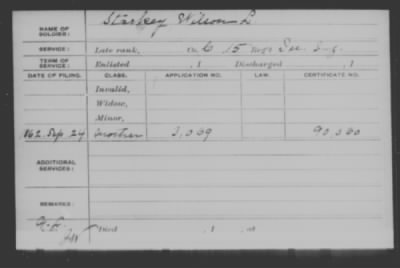 NAME OF SOLDIER: Starkey Wilson L.
SERVICE: Late rank, Co. C 15 Reg't
TERM OF SERVICE: Enlisted , 1 Discharged , 1
DATE OF FILING. CLASS. APPLICATION NO. LAW. CERTIFICATE NO.
Invalid,
Widow,
Minor,
862 Sep. 24 Mother 3,069 90,060
ADDITIONAL SERVICES:
REMARKS:
Died , 1 , at